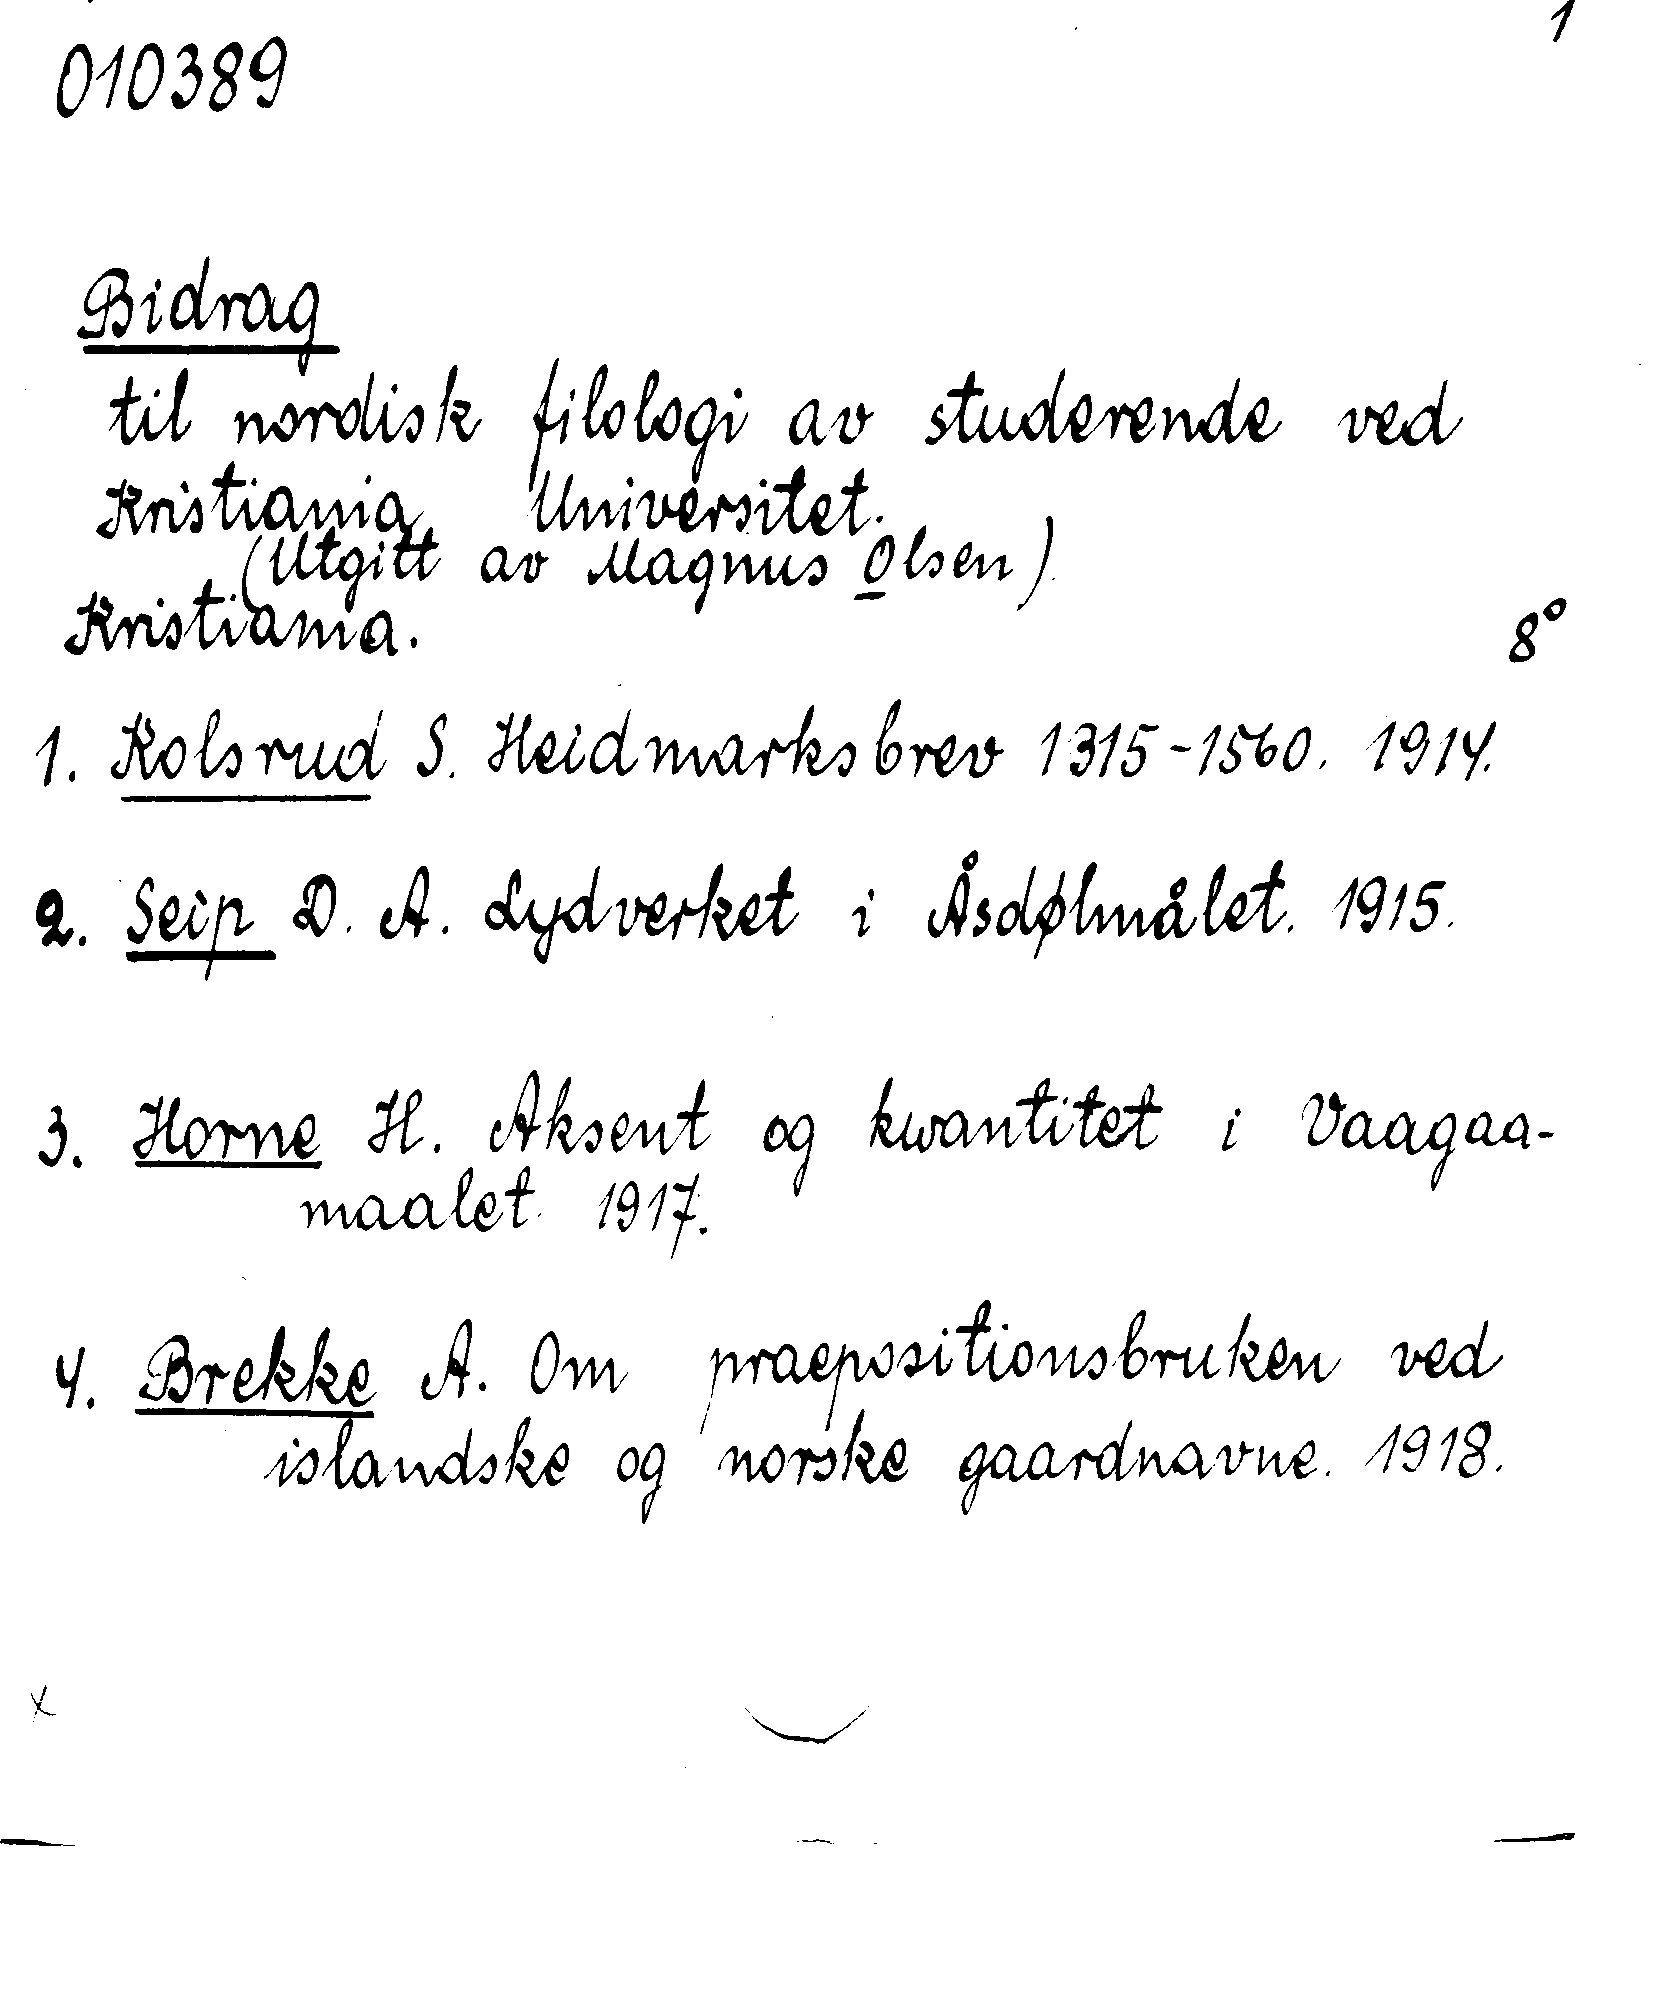 1
010389
Bidrag
til nordisk filologi av studerende ved
Kristiania Universitet.
(Utgitt av Magnus Olsen)
Kristiania. 8°
1. Kolsrud S. Heidmarksbrev 1315-1560. 1914.
2. Seip D. A. Lydverket i Åsdølmålet. 1915.
3. Horne H. Aksent og kwantitet i Vaagaa-
maalet. 1917.
4. Brekke A. Om praepositionsbruken ved
islandske og norske gaardnavne. 1918.
x